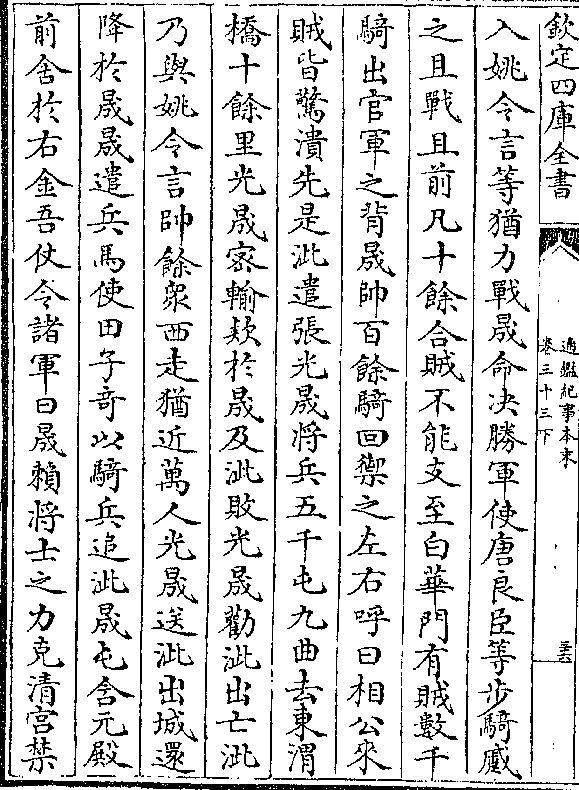 欽定四庫全書
通鑑紀事本末
卷三十三下
三六
入姚令言等猶力戰晟命决勝軍使唐良臣等步騎蹙
之且戰且前凡十餘合賊不能支至白華門有賊數千
騎出官軍之背晟帥百餘騎回禦之左右呼曰相公來
賊皆驚潰先是泚遣張光晟将兵五千屯九曲去東渭
橋十餘里光晟密輸欵於晟及泚敗光晟勸泚出亡泚
乃與姚令言帥餘衆西走猶近萬人光晟送泚出城還
降於晟晟遣兵馬使田子竒以騎兵追泚晟屯含元殿
前舍於右金吾仗令諸軍曰晟賴將士之力克清宫禁